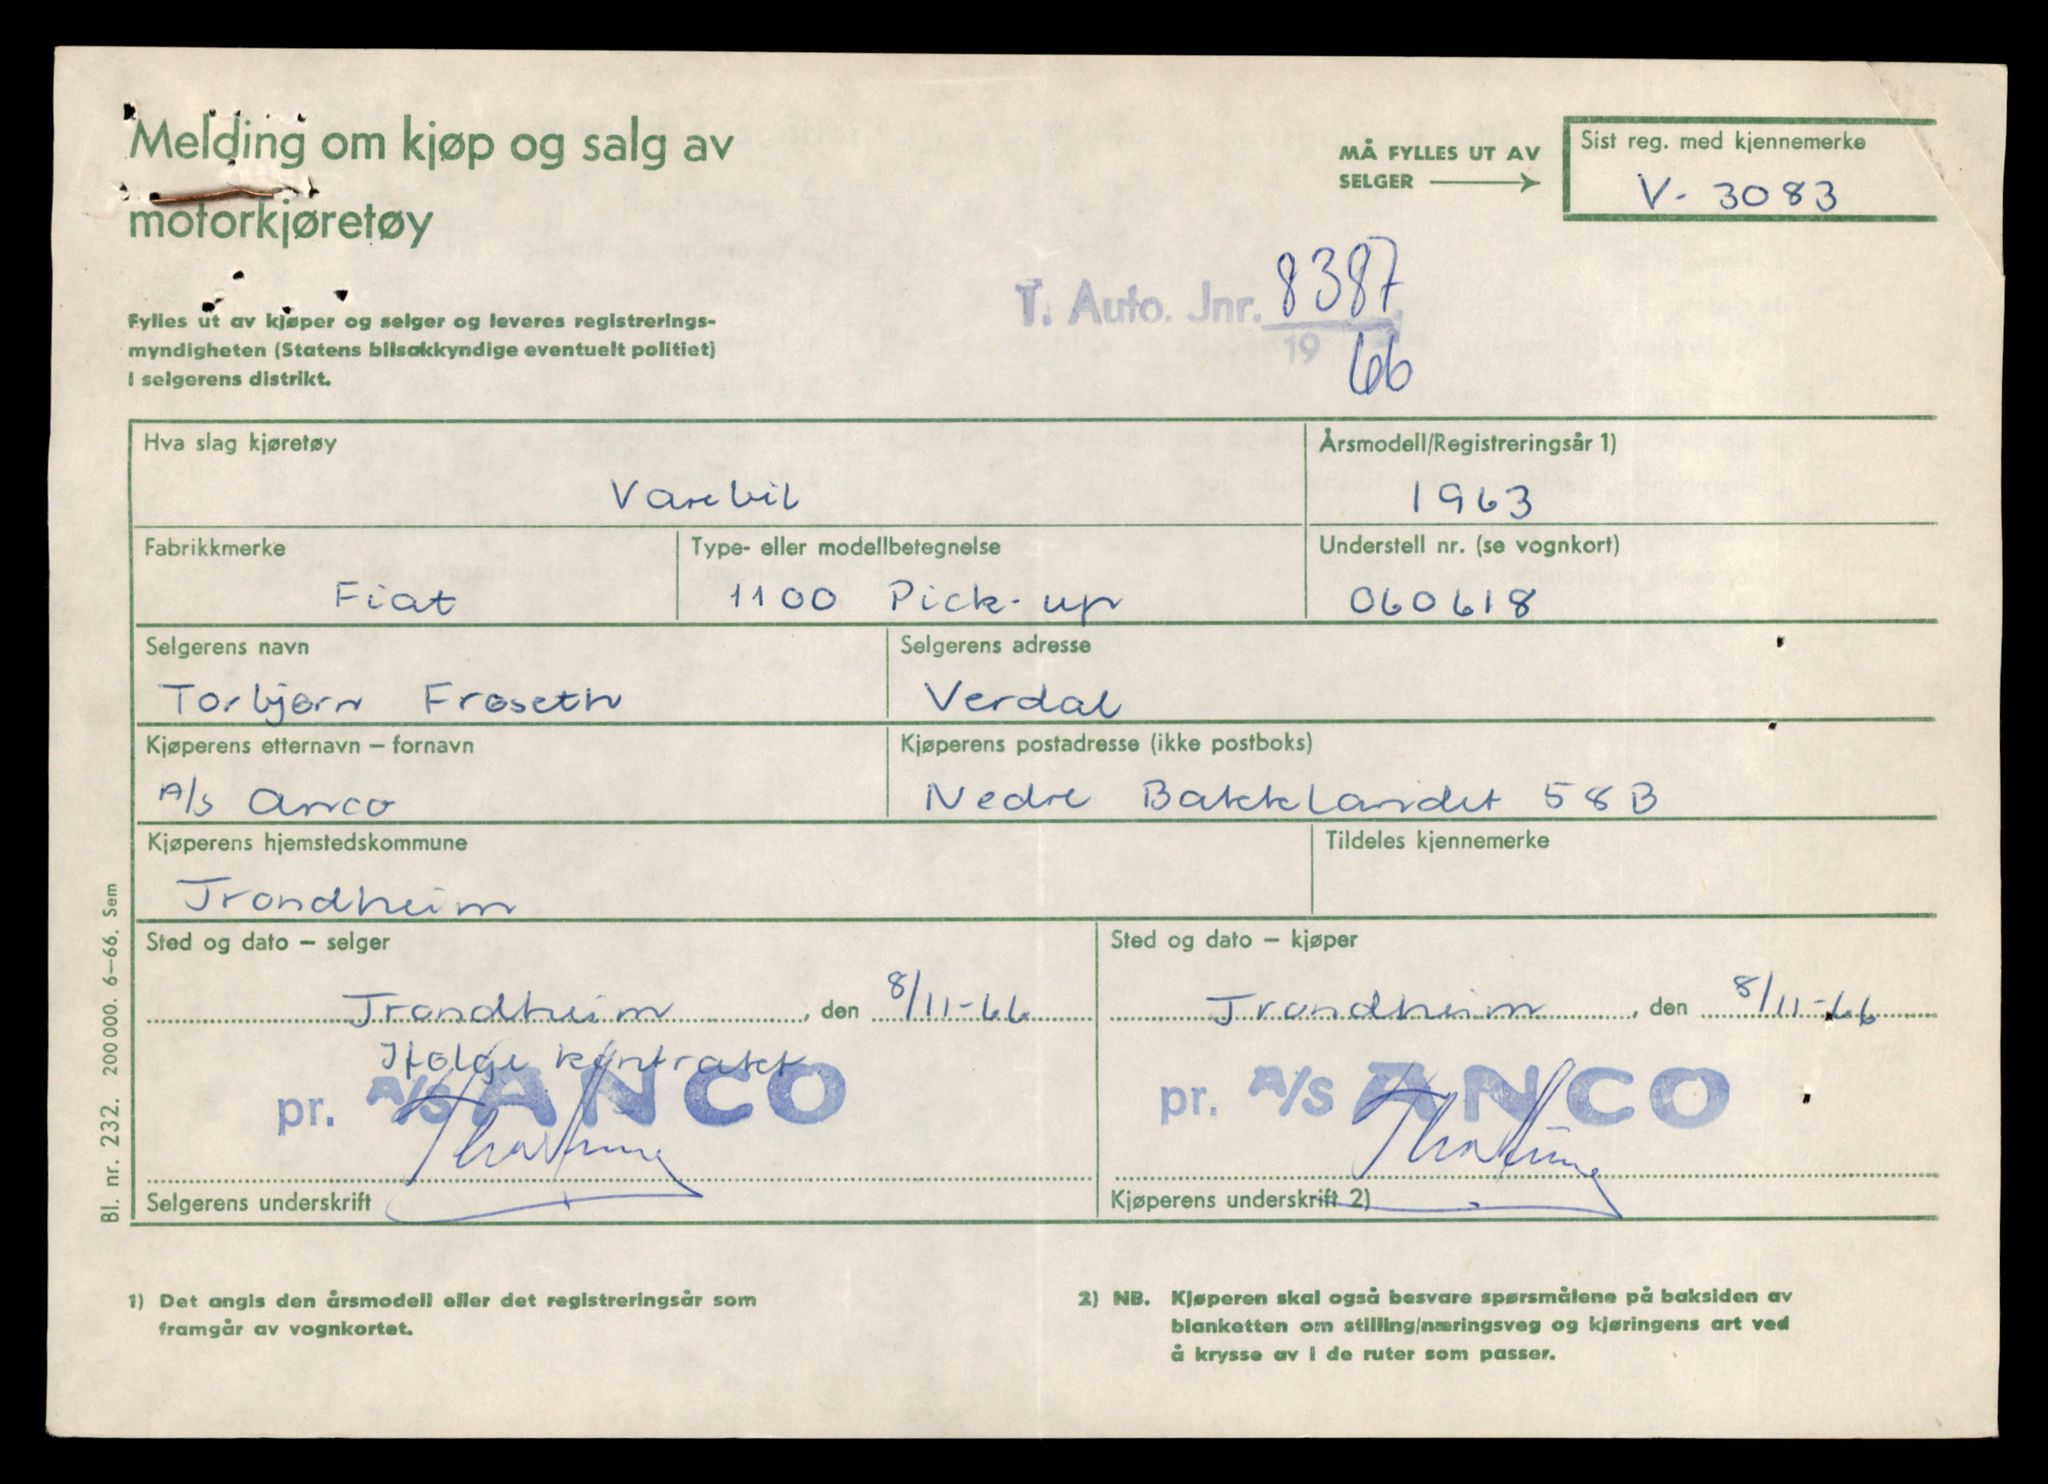 Melding om kjøp og salg av
motorkjøretøy
MÅ FYLLES UT AV
SELGER
Sist reg. med kjennemerke
V- 3083
T. Auto. Jnr. 8387
19 66
Fylles ut av kjøper og selger og leveres registrerings-
myndigheten (Statens bilsakkyndige eventuelt politiet)
i selgerens distrikt.
Hva slag kjøretøy
Varebil
Årsmodell/Registreringsår 1)
1963
Fabrikkmerke
Fiat
Type- eller modellbetegnelse
1100 Pick-up
Understell nr. (se vognkort)
060618
Selgerens navn
Torbjørn Frøseth
Selgerens adresse
Verdal
Kjøperens etternavn – fornavn
A/S Anco
Kjøperens postadresse (ikke postboks)
Nedre Bakklandet 58B
Kjøperens hjemstedskommune
Trondheim
Tildeles kjennemerke
Sted og dato – selger
Trondheim, den 8/11-66
Ifølge kontrakt
pr. A/S ANCO
Selgerens underskrift
Sted og dato – kjøper
Trondheim, den 8/11-66
pr. A/S ANCO
Kjøperens underskrift 2)
Bl. nr. 232. 200 000. 6–66. Sem
1) Det angis den årsmodell eller det registreringsår som
framgår av vognkortet.
2) NB. Kjøperen skal også besvare spørsmålene på baksiden av
blanketten om stilling/næringsveg og kjøringens art ved
å krysse av i de ruter som passer.